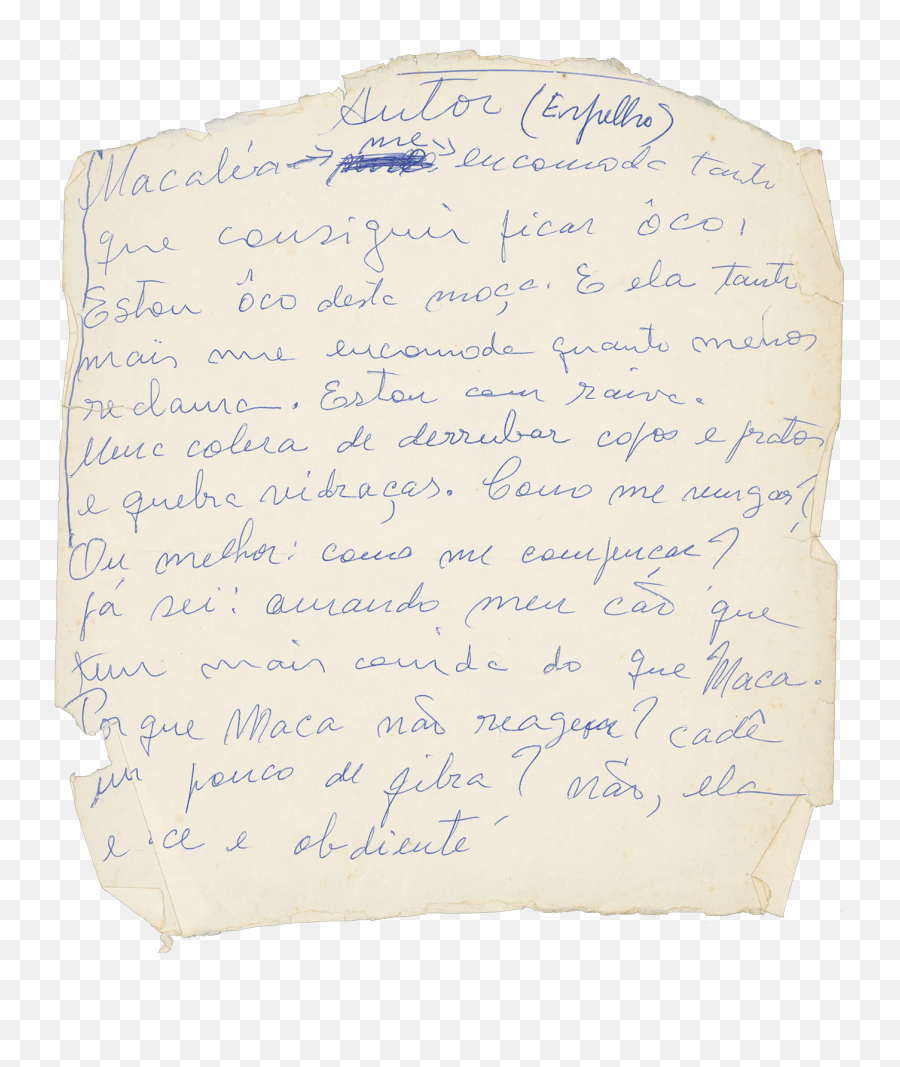 Autor (Espelho)
Macabéa → me encomoda tanto
que consiguir ficar ôco,
Estou ôco desta moça. E ela tanto
mais me encomoda quanto menos
reclama. Estou com raiva.
Uma colera de derrubar copos e pratos
e quebra vidraças. Como me vingar?
Ou melhor: como me compensar?
Já sei: amando meu cão que
tem mais comida do que Maca.
Porque Maca não reage? cadê
um pouco de fibra? não, ela
e e obdiente